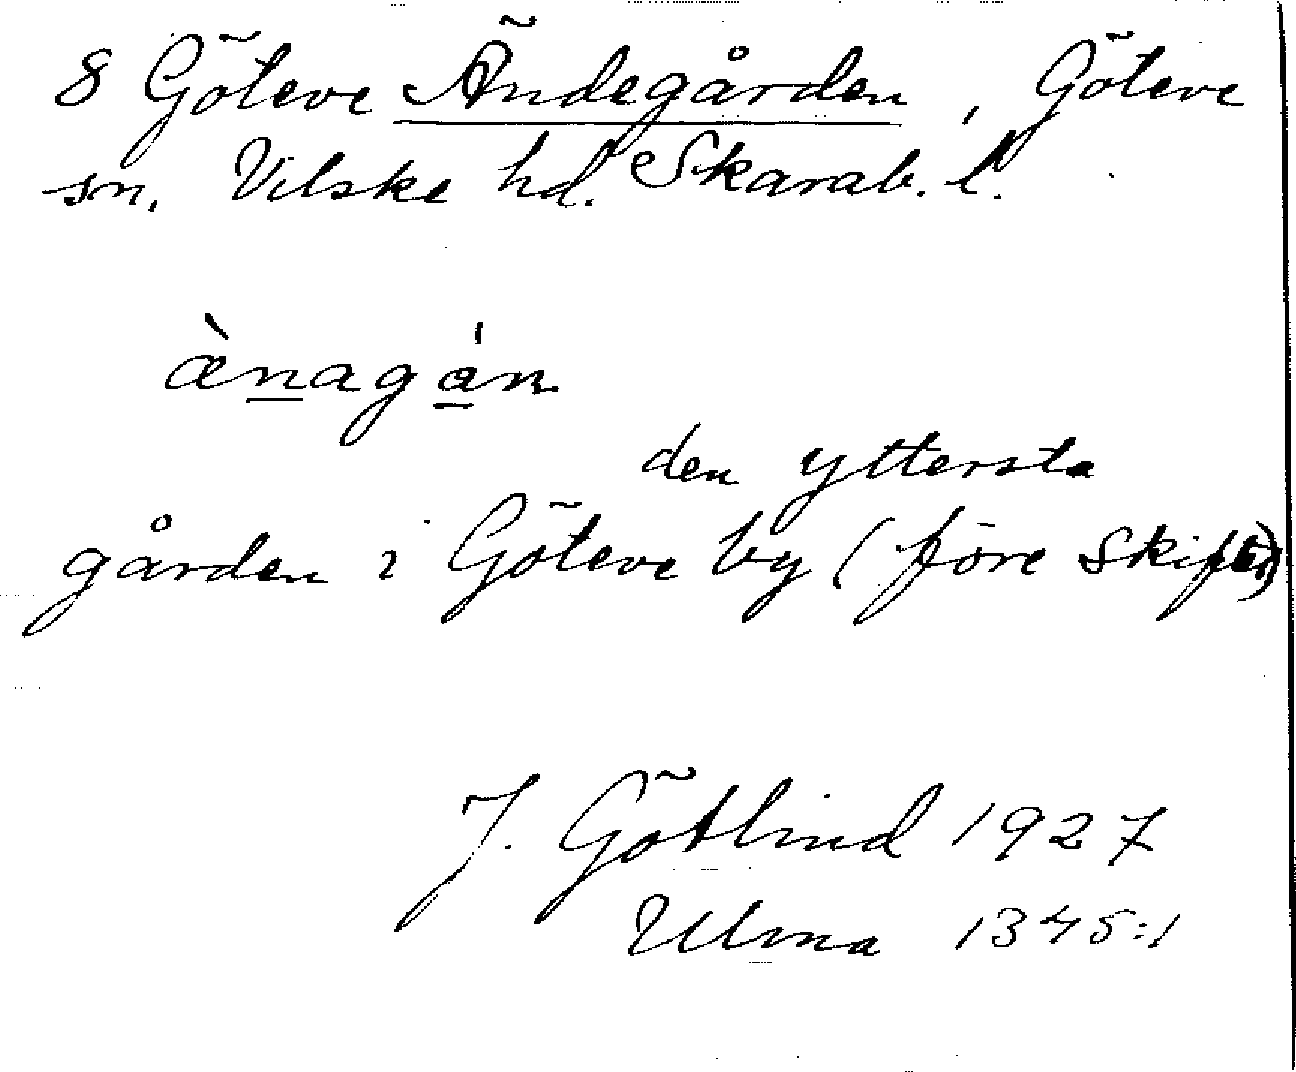 8 Göteve Ändegården, Göteve
sn. Vilske hd. Skarab. l.
æ̀nagán
den yttersta
gården i Göteve by (före skiftet)
J. Götlind 1927
Ulma 1345:1